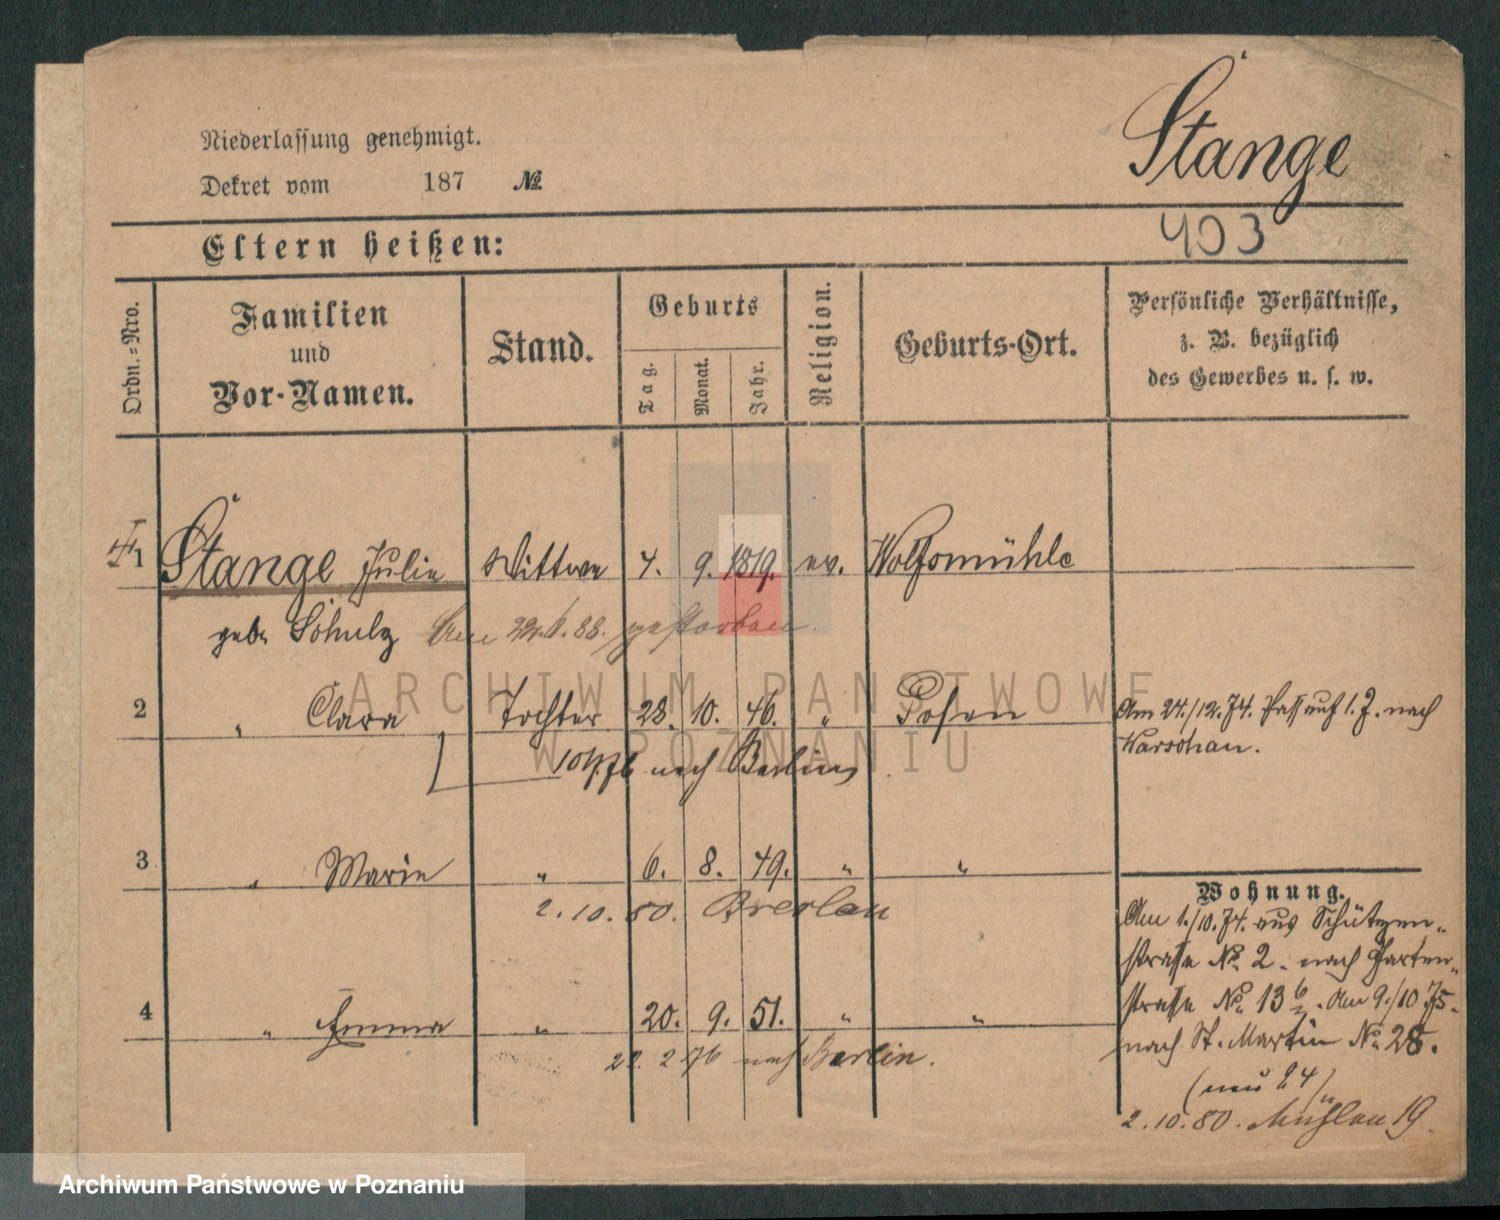 Stange
Niederlassung genehmigt.
Dekret vom 187 №
403
Eltern heißen:
Ordn.-Nro.
Familien
und
Vor-Namen.
Stand.
Geburts
Tag.
Monat.
Jahr.
Religion.
Geburts-Ort.
Persönliche Verhältnisse,
z. B. bezüglich
des Gewerbes u. s. w.
1 Stange Julie Wittwe 4. 9. 1819. ev. Wolfsmühle
geb. Schulz Am 22.6.88. gestorben.
ARCHIWUM PAŃSTWOWE
W POZNANIU
2 " Clara Tochter 28. 10. 46. " Posen
Am 24./12.74. Pass auf 1. J. nach
Warschau.
nach Berlin
3 " Marie " 6. 8. 49. " "
2.10.80. Breslau
Wohnung.
Am 1./10.74. aus Schützen-
strasse No. 2. nach Garten-
strasse No. 13 b. Am 9./10 75.
nach St. Martin No. 28.
(neu 24)
2.10.80. Mühlen 19.
4 " Emma " 20. 9. 51. " "
22. 2 76 nach Berlin.
Archiwum Państwowe w Poznaniu